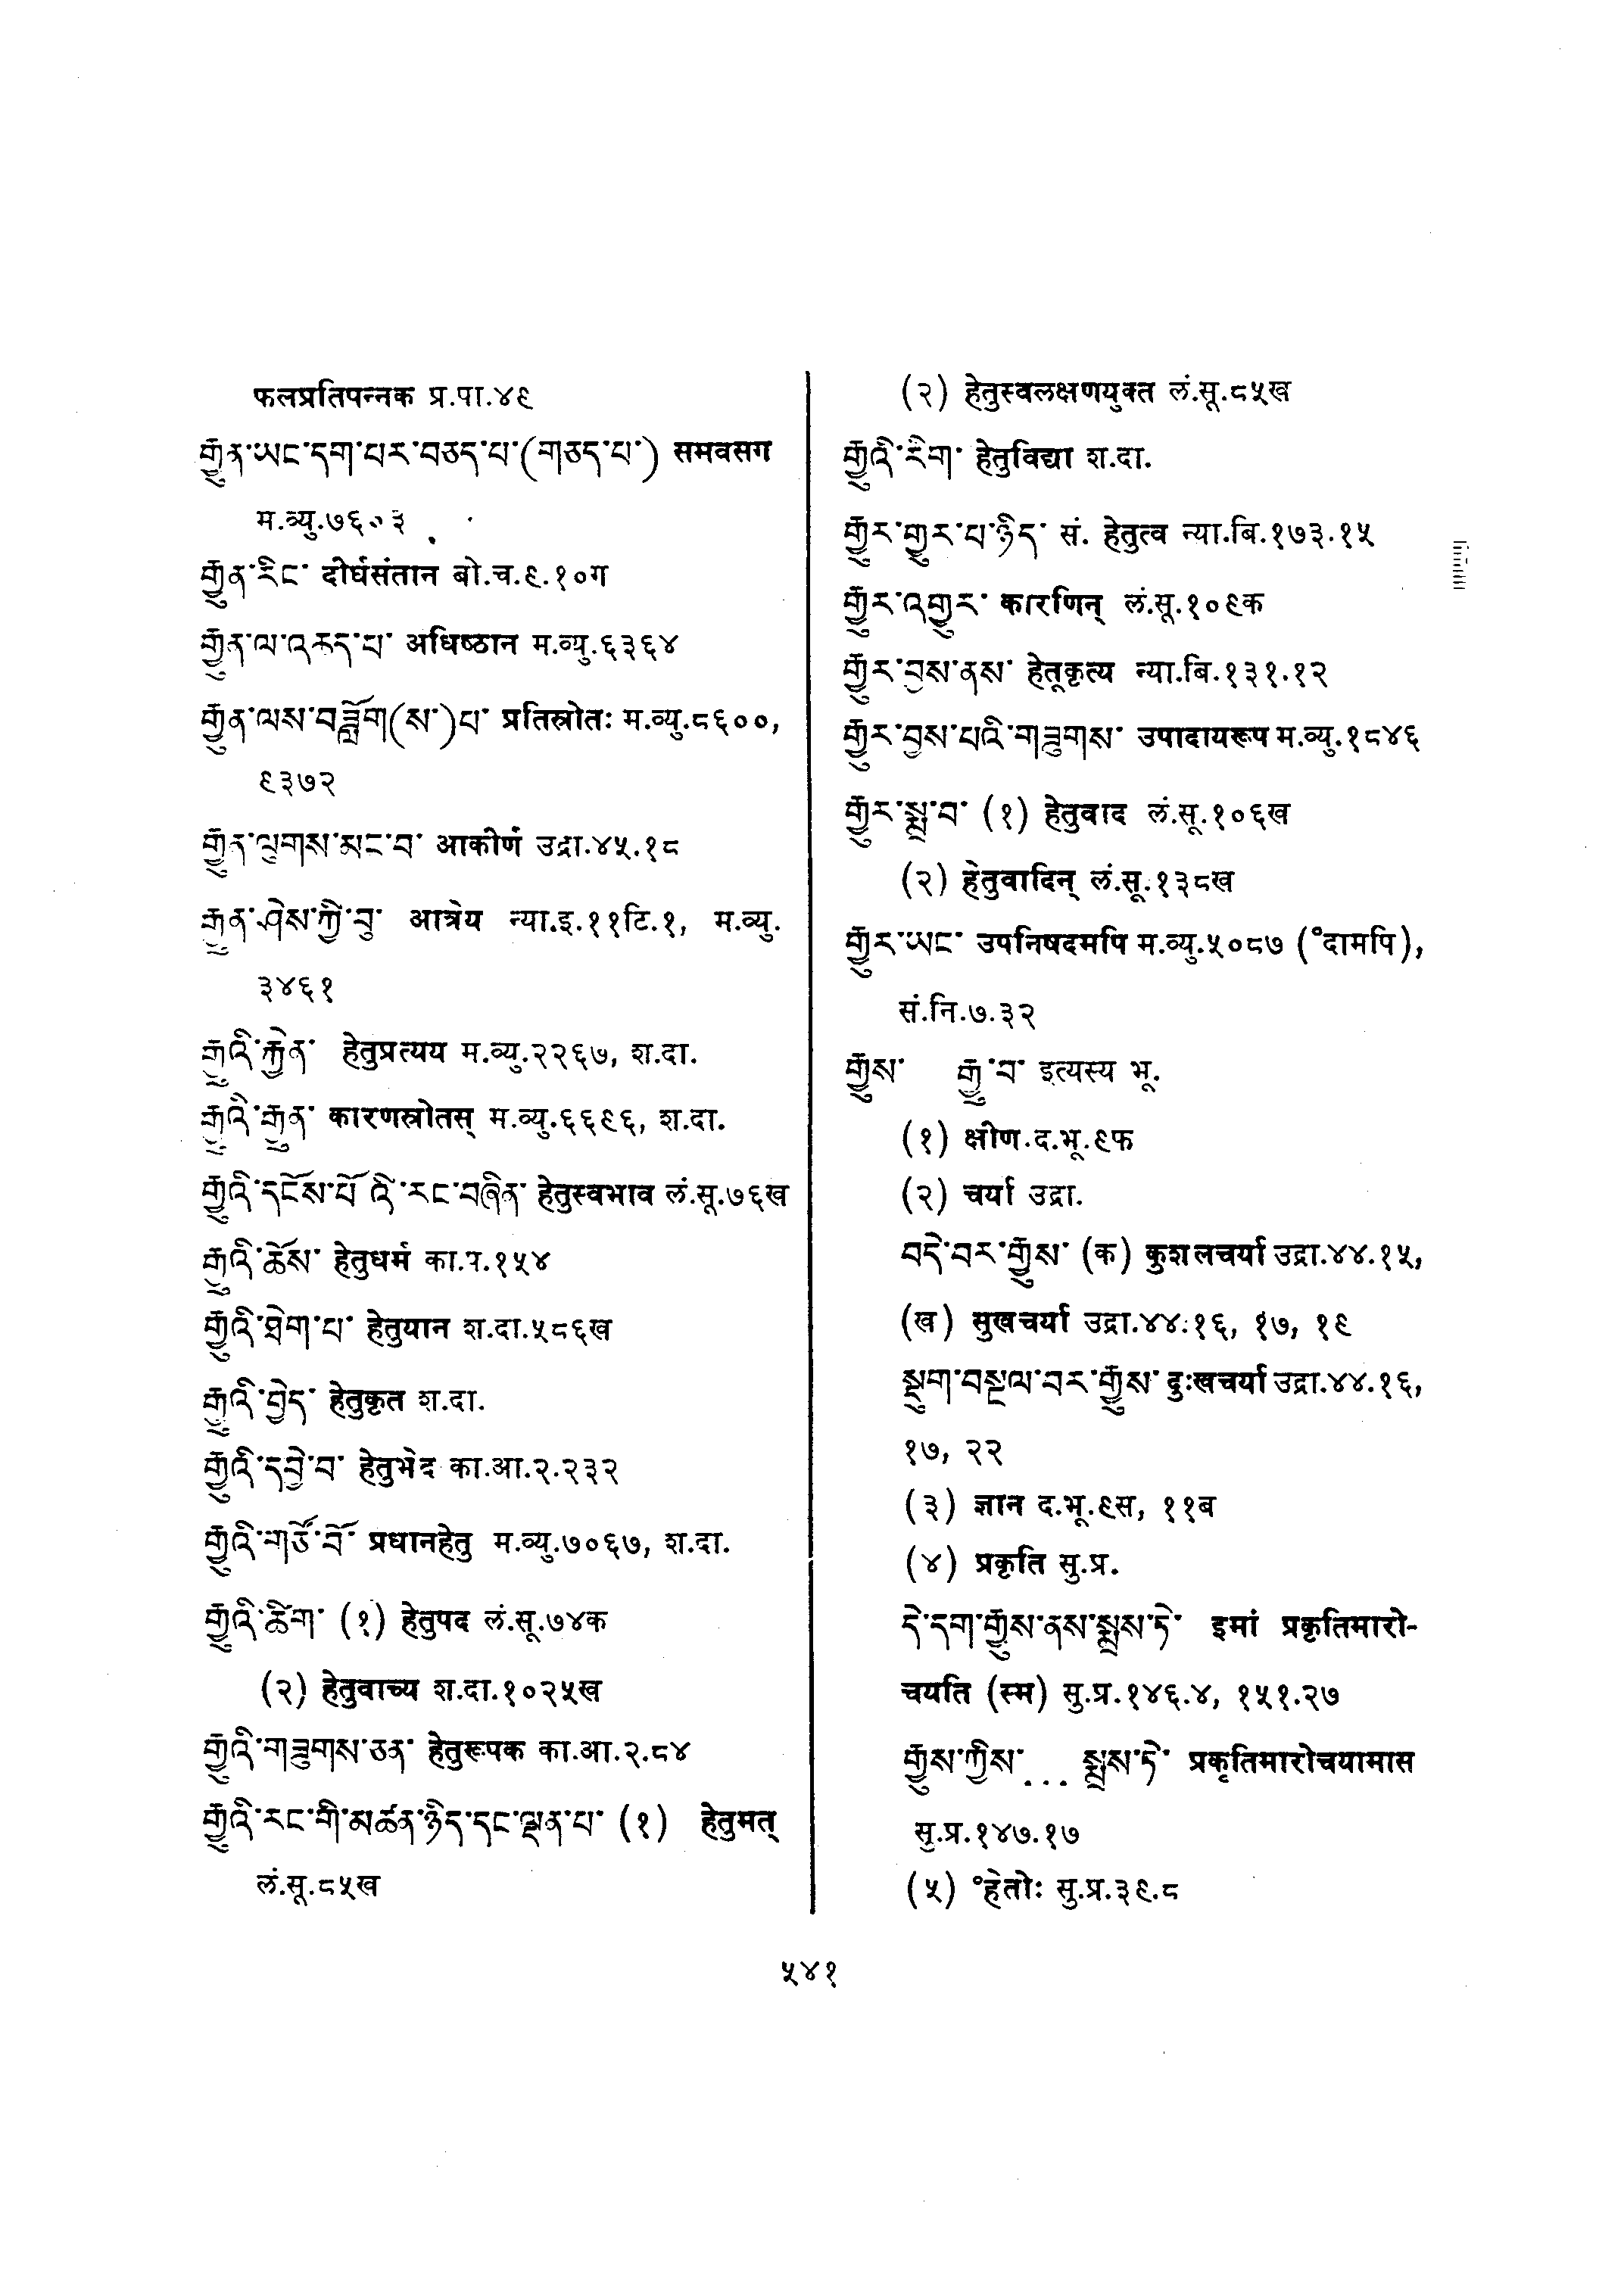 फलप्रतिपन्नक प्र.पा.४९
རྒྱུན་ཡང་དག་པར་བཅད་པ་(གཅད་པ་) समवसग
म.व्यु.७६०३
རྒྱུན་རིང་ दीर्घसंतान बो.च.९.१०ग
རྒྱུན་ལ་འཆད་པ་ अधिष्ठान म.व्यु.६३६४
རྒྱུན་ལས་བཟློག(ས་)པ་ प्रतिस्रोतः म.व्यु.८६००,
९३७२
རྒྱུན་ལུགས་མང་བ་ आकीर्ण उद्रा.४५.१८
རྒྱུན་ཤེས་ཀྱི་བུ་ आत्रेय न्या.इ.११टि.१, म.व्यु.
३४६१
རྒྱུའི་རྐྱེན་ हेतुप्रत्यय म.व्यु.२२६७, श.दा.
རྒྱུའི་རྒྱུན་ कारणस्रोतस् म.व्यु.६६९६, श.दा.
རྒྱུའི་དངོས་པོ འི་རང་བཞིན་ हेतुस्वभाव लं.सू.७६ख
རྒྱུའི་ཆོས་ हेतुधर्म का.प.१५४
རྒྱུའི་ཐེག་པ་ हेतुयान श.दा.५८६ख
རྒྱུའི་བྱེད་ हेतुकृत श.दा.
རྒྱུའི་དབྱེ་བ་ हेतुभेद का.आ.२.२३२
རྒྱུའི་གཙོ་བོ་ प्रधानहेतु म.व्यु.७०६७, श.दा.
རྒྱུའི་ཚིག་ (१) हेतुपद लं.सू.७४क
(२) हेतुवाच्य श.दा.१०२५ख
རྒྱུའི་གཟུགས་ཅན་ हेतुरूपक का.आ.२.८४
རྒྱུའི་རང་གི་མཚན་ཉིད་དང་ལྡན་པ་ (१) हेतुमत्
लं.सू.८५ख
(२) हेतुस्वलक्षणयुक्त लं.सू.८५ख
རྒྱུའི་རིག་ हेतुविद्या श.दा.
རྒྱུར་གྱུར་པ་ཉིད་ सं. हेतुत्व न्या.बि.१७३.१५
རྒྱུར་འགྱུར་ कारणिन् लं.सू.१०९क
རྒྱུར་བྱས་ནས་ हेतूकृत्य न्या.बि.१३१.१२
རྒྱུར་བྱས་པའི་གཟུགས་ उपादायरूप म.व्यु.१८४६
རྒྱུར་སྨྲ་བ་ (१) हेतुवाद लं.सू.१०६ख
(२) हेतुवादिन् लं.सू.१३८ख
རྒྱུར་ཡང་ उपनिषदमपि म.व्यु.५०८७ (°दामपि),
सं.नि.७.३२
རྒྱུས་ རྒྱུ་བ་ इत्यस्य भू.
(१) क्षीण.द.भू.९फ
(२) चर्या उद्रा.
བདེ་བར་རྒྱུས་ (क) कुशलचर्या उद्रा.४४.१५,
(ख) सुखचर्या उद्रा.४४.१६, १७, १९
སྡུག་བསྔལ་བར་རྒྱུས་ दुःखचर्या उद्रा.४४.१६,
१७, २२
(३) ज्ञान द.भू.९स, ११ब
(४) प्रकृति सु.प्र.
དེ་དག་རྒྱུས་ནས་སྨྲས་ཏེ་ इमां प्रकृतिमारो-
चयति (स्म) सु.प्र.१४६.४, १५१.२७
རྒྱུས་ཀྱིས་... སྨྲས་ཏེ་ प्रकृतिमारोचयामास
सु.प्र.१४७.१७
(५) °हेतोः सु.प्र.३९.८
५४१